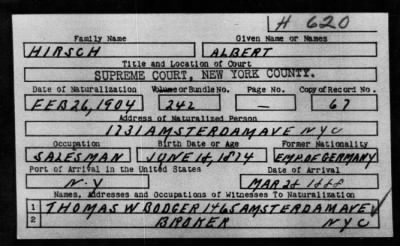 H 620
Family Name Given Name or Names
HIRSCH ALBERT
Title and Location of Court
SUPREME COURT, NEW YORK COUNTY.
Date of Naturalization Volume or Bundle No. Page No. Copy of Record No.
FEB 26, 1904 242 — 67
Address of Naturalized Person
1731 AMSTERDAM AVE NYC
Occupation Birth Date or Age Former Nationality
SALESMAN JUNE 14, 1874 EMP. OF GERMANY
Port of Arrival in the United States Date of Arrival
N.Y MAR 24 1888
Names, Addresses and Occupations of Witnesses To Naturalization
1 THOMAS W BODGER 1465 AMSTERDAM AVE
2 BROKER NYC